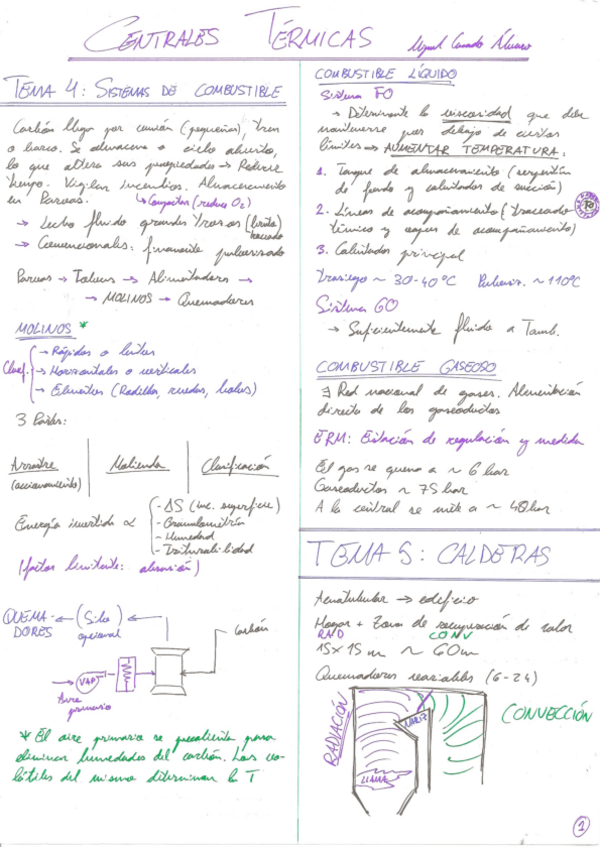 CENTRALES TÉRMICAS
TEMA 4: SISTEMAS DE COMBUSTIBLE
Carbón llega por camión (pequeñas), tren
o barco. Se almacena a cielo abierto,
lo que altera sus propiedades → Reducir
tiempo. Vigilar incendios. Almacenamiento
en Parvas. ↳ Compactar (reduce O₂)
→ Lecho fluido grandes trozos
→ Convencionales: finamente pulverizado
Parvas → Tolvas → Alimentadores →
→ MOLINOS → Quemadores
MOLINOS *
Clasif. → Rápidos o lentos
→ Horizontales o verticales
→ Elementos (Rodillos, ruedas, bolas)
3 Partes:
Arrastre (accionamiento) | Molienda | Clasificación
Energía invertida ∝
- ΔS (inc. superficie)
- Granulometría
- Humedad
- Triturabilidad
(factor limitante: abrasión)
QUEMADORES ← (Silo) opcional ←
Carbón
VAP
Aire primario
* El aire primario se precalienta para
eliminar humedades del carbón. Los vo-
látiles del mismo determinan la T
COMBUSTIBLE LÍQUIDO
Sistema FO
→ Determinante la viscosidad que debe
mantenerse por debajo de ciertos
límites → AUMENTAR TEMPERATURA.
1. Tanque de almacenamiento (serpentín
de fondo y calentador de succión)
2. Líneas de acompañamiento (traceado
térmico y vapor de acompañamiento)
3. Calentador principal
Trasiego ~ 30-40°C Pulveriz. ~ 110°C
Sistema GO
→ Suficientemente fluido a Tamb.
COMBUSTIBLE GASEOSO
∃ Red nacional de gases. Alimentación
directa de los gaseoductos
ERM: Estación de regulación y medida
El gas se quema a ~ 6 bar
Gaseoductos ~ 75 bar
A la central se mete a ~ 40 bar
TEMA 5: CALDERAS
Acuatubular → edificio
Hogar + Zona de recuperación de calor
RAD CONV
15x15 m ~ 60m
Quemadores reversibles (6-24)
RADIACIÓN
NARIZ
CONVECCIÓN
LLAMA
1